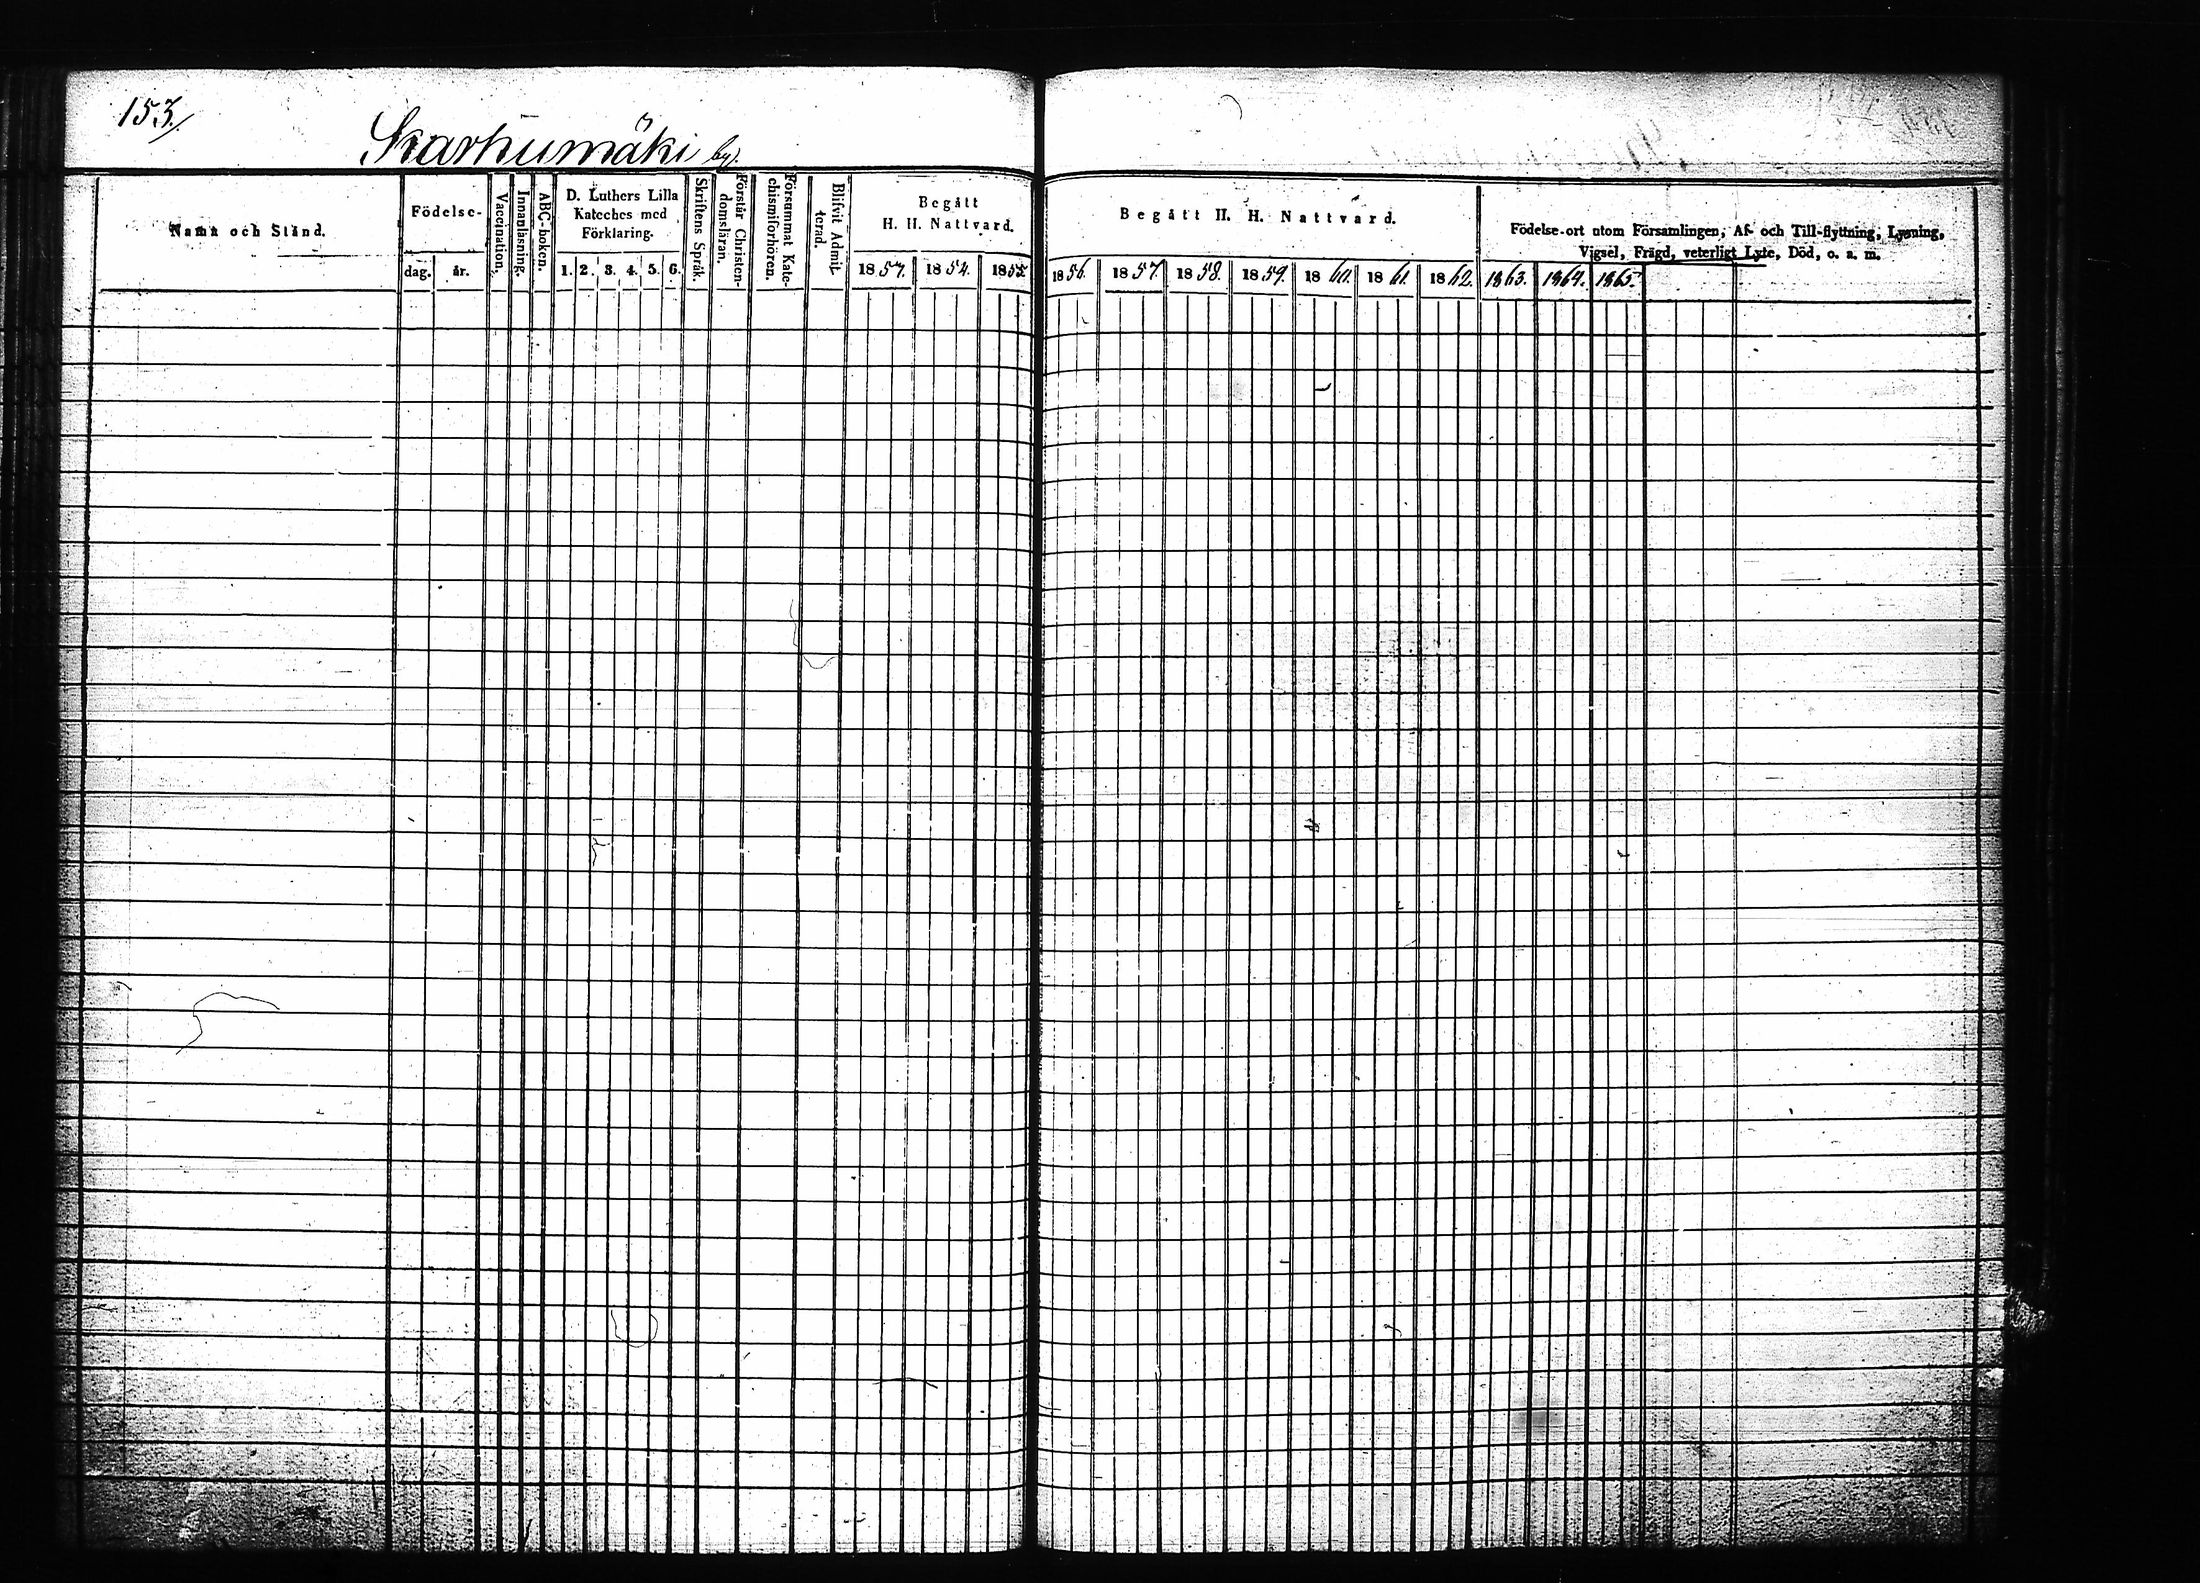 153.
Karhumäki by.
Namn och Stånd.
Födelse-
dag. år.
Vaccination.
Innanläsning.
ABC-boken.
D. Luthers Lilla
Kateches med
Förklaring.
1. 2. 3. 4. 5. 6.
Skriftens Språk.
Förstår Christen-
domsläran.
Försummat Kate-
chismiförhören.
Blifvit Admit-
terad.
Begått
H. H. Nattvard.
1853. 1854. 1855
Begått H. H. Nattvard.
1856. 1857. 1858. 1859. 1860. 1861. 1862.
Födelse-ort utom Församlingen, Af- och Till-flyttning, Lysning,
Vigsel, Frägd, veterligt Lyte, Död, o. s. m.
1863. 1864. 1865.